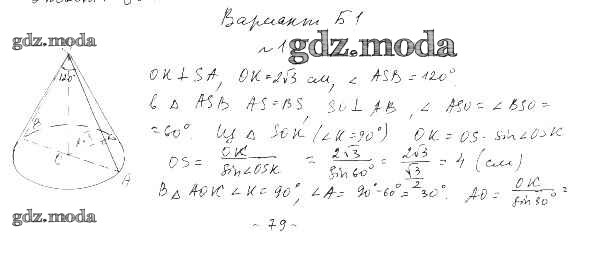 Вариант Б1
gdz.moda
~1
gdz.moda
120°
B
K
O
A
OK ⊥ SA, OK = 2√3 см, ∠ ASB = 120°.
В △ ASB AS = BS, SO ⊥ AB, ∠ ASO = ∠ BSO =
= 60°. Из △ SOK (∠K = 90°) OK = OS · sin∠OSK
OS = OK / sin∠OSK = 2√3 / sin 60° = 2√3 / (√3/2) = 4 (см)
В △ AOK ∠K = 90°, ∠A = 90° - 60° = 30°. AO = OK / sin 30° =
gdz.moda
- 79 -